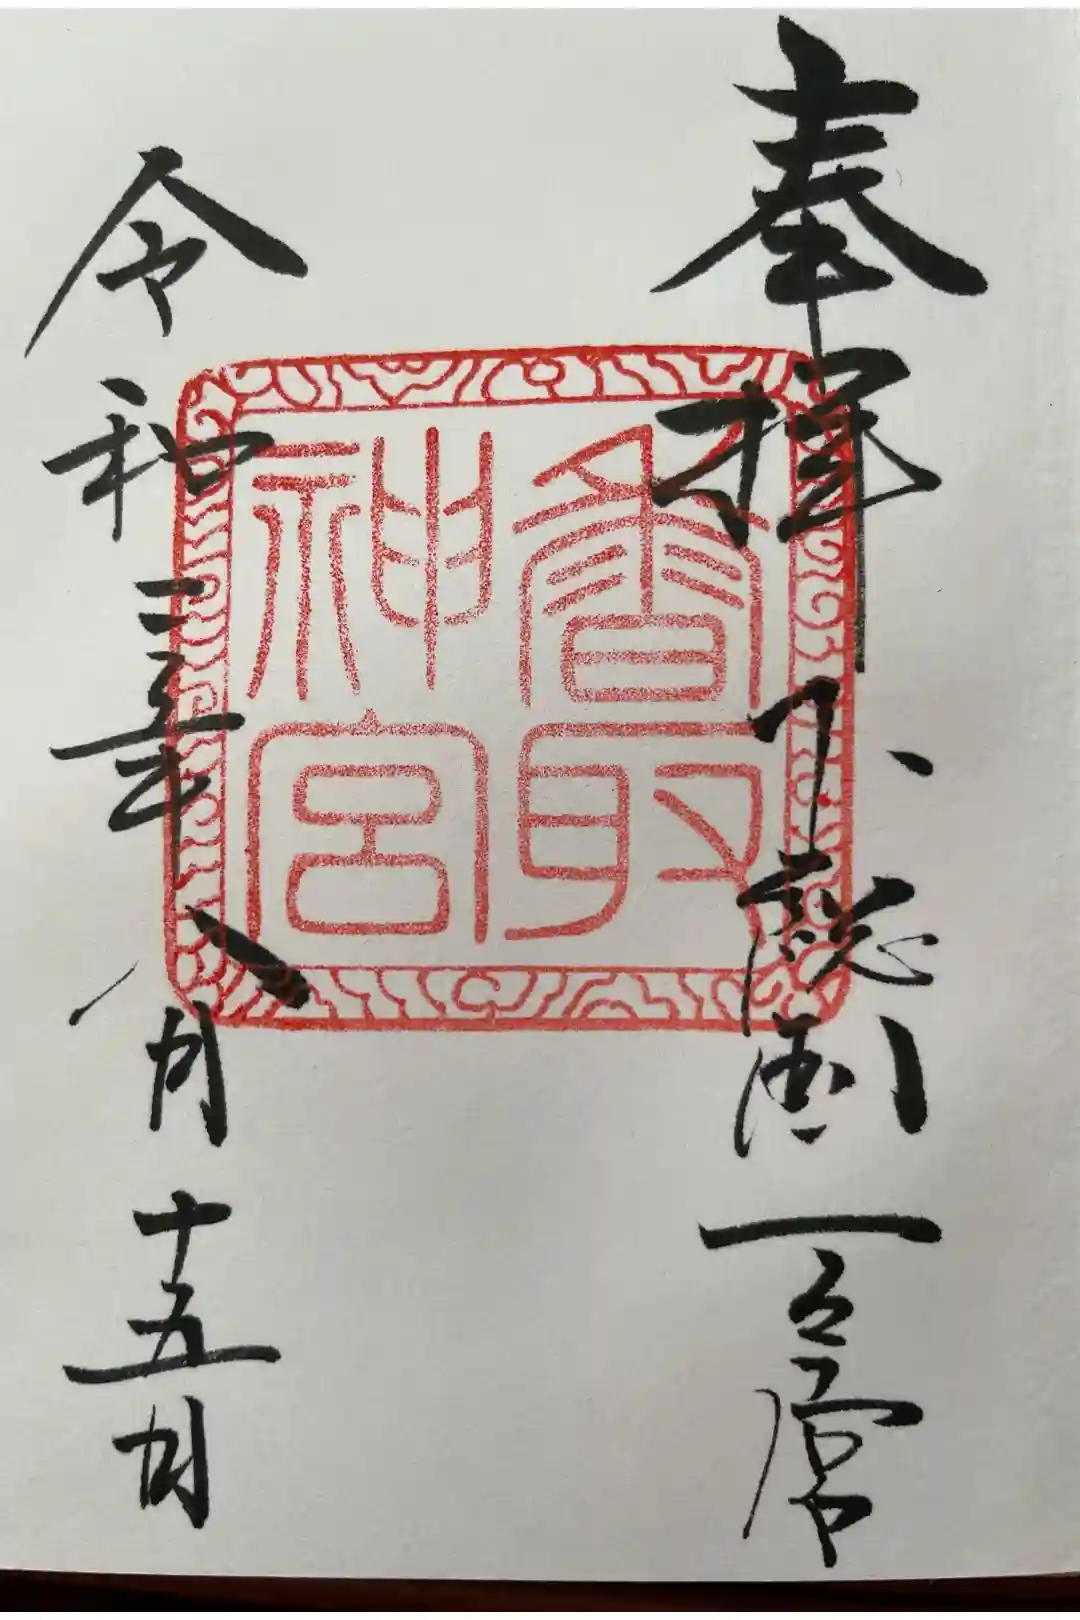 奉拝
下総國一之宮
香取
神宮
令和 年八月十五日